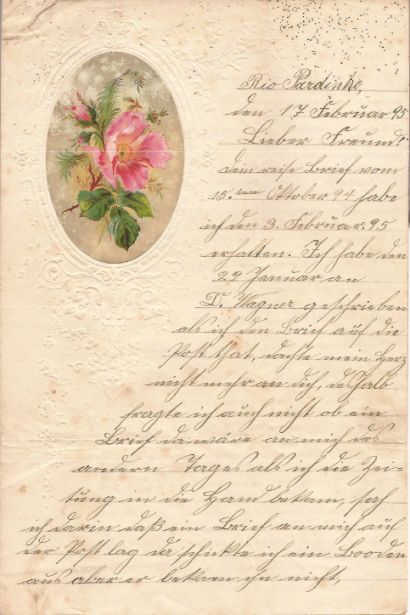 Rio Pardinho,
den 17 Februar 95
Lieber Freund!
Dein Brief vom
15. Oktober 94 habe
ich den 3. Februar. 95
erhalten. Ich habe den
29 Januar an
D. Wagner geschrieben
als ich den Brief auf die
Post that, dachte mein Herz
nicht mehr an dich, deshalb
fragte ich auch nicht ob ein
Brief da wäre an mich des
andern Tages als ich die Zei-
tung in die Hand bekam, sah
ich darin daß ein Brief an mich auf
der Post lag da schickte ich ein Booden
aus aber er bekam ihn nicht,